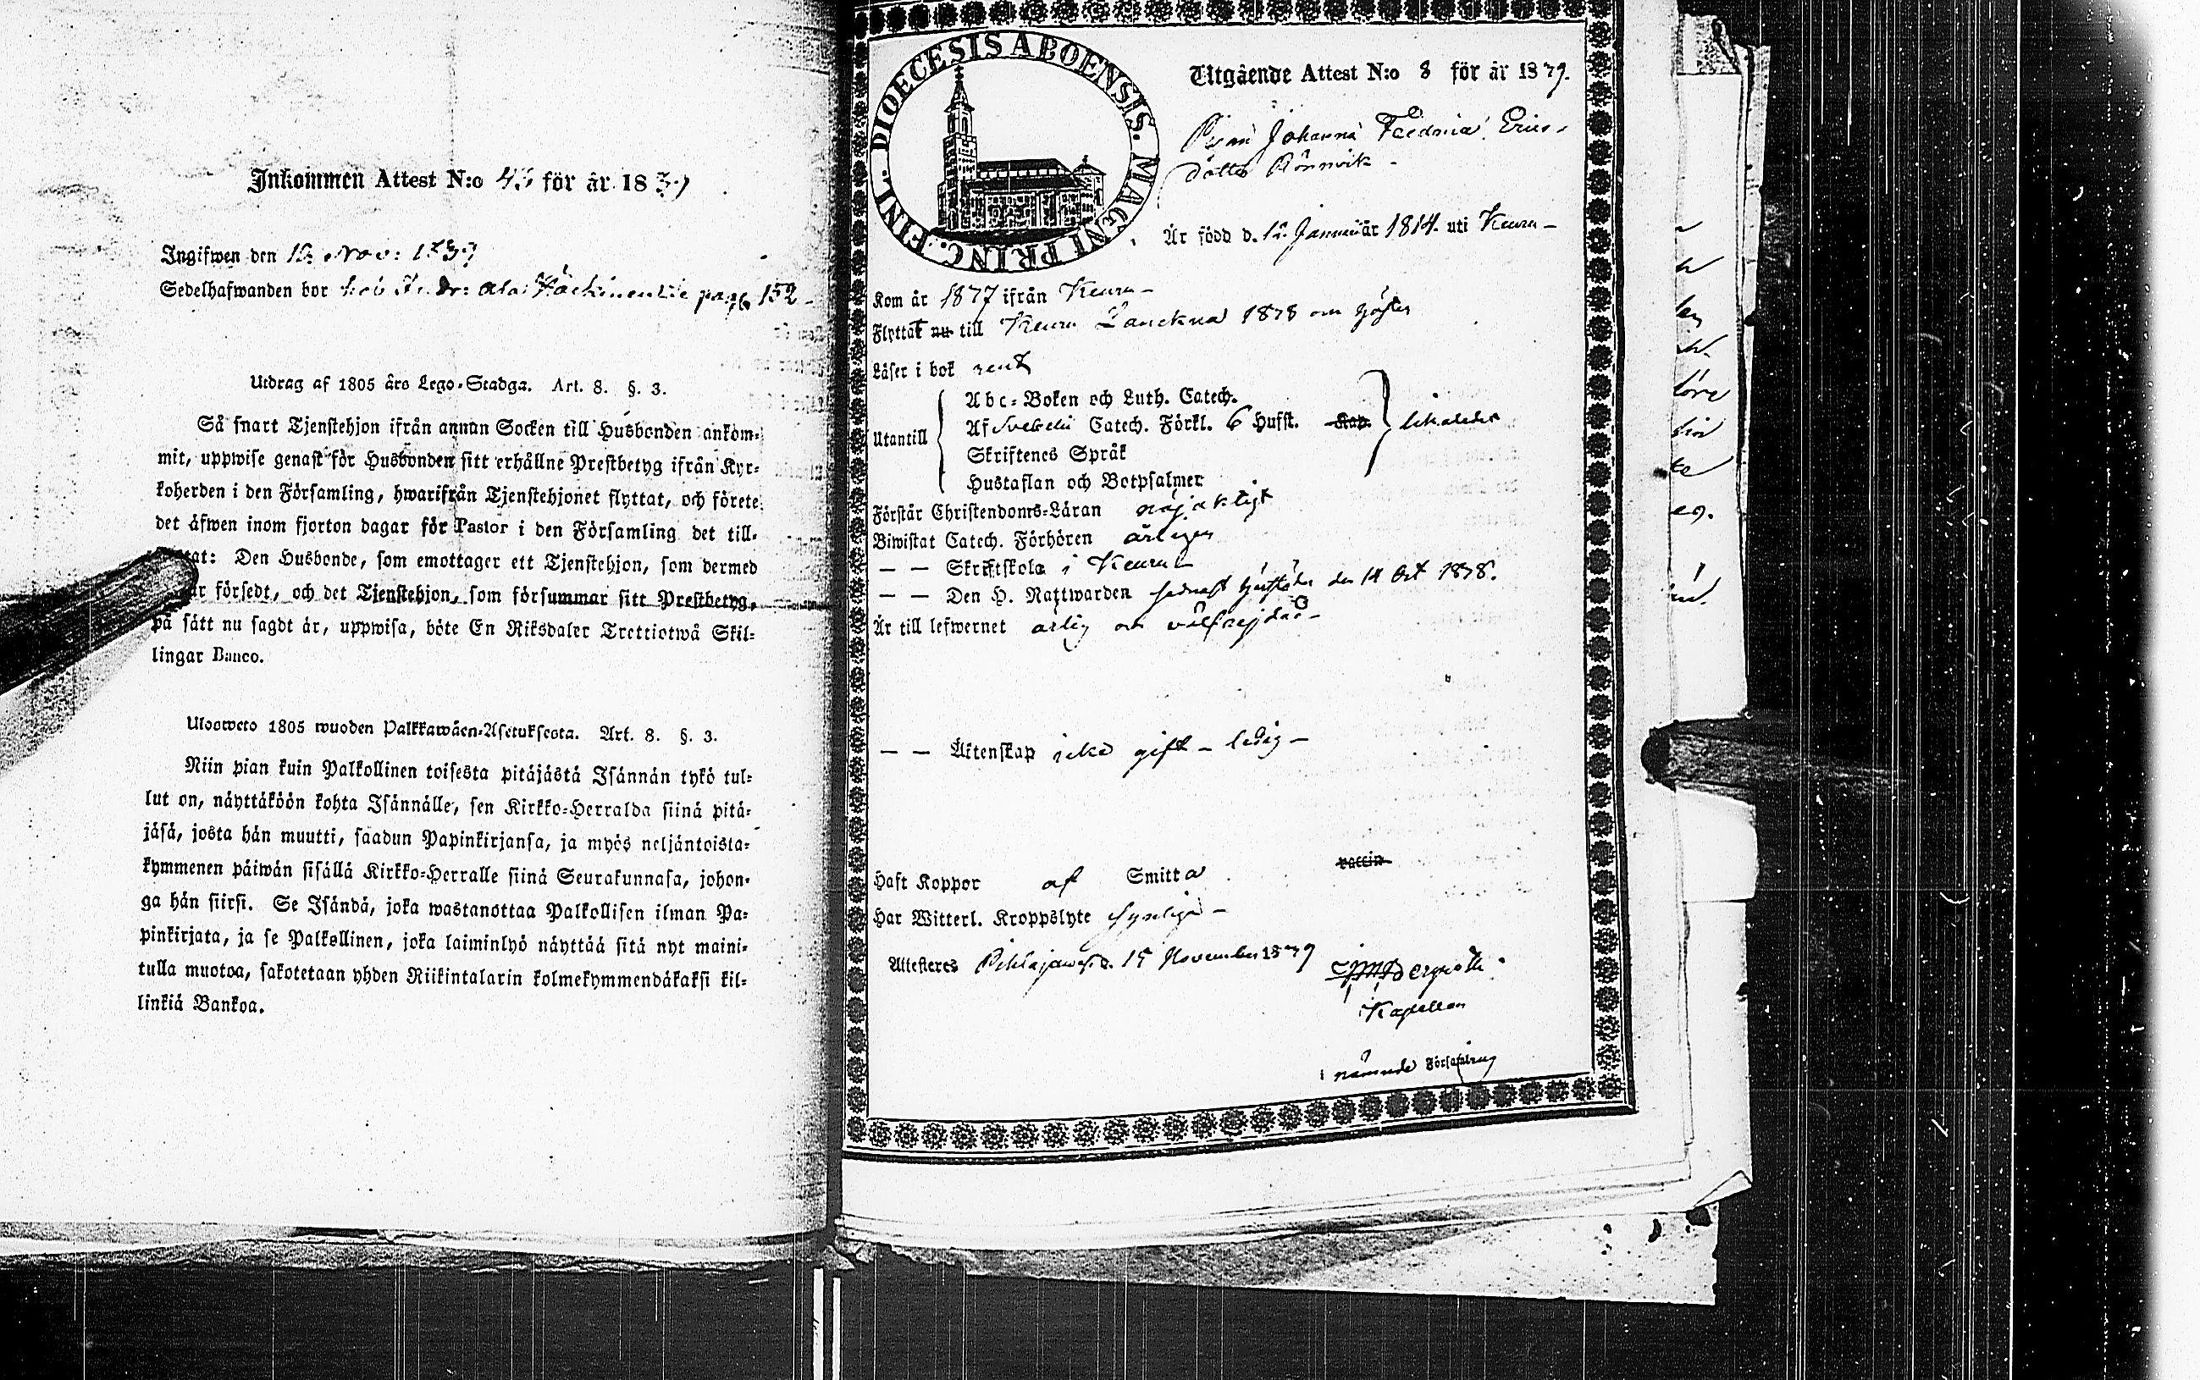 Inkommen Attest N:o 43 för år 18
Ingifwen den Nov:
Sedelhafwanden bor hos pag. 152
Utdrag af 1805 års Lego-Stadga. Art. 8. §. 3.
Så snart Tjenstehjon ifrån annan Socken till Husbonden ankom-
mit, uppwise genast för Husbonden sitt erhållne Prestbetyg ifrån Kyr-
koherden i den Församling, hwarifrån Tjenstehjonet flyttat, och förete
det äfwen inom fjorton dagar för Pastor i den Församling det till-
Den Husbonde, som emottager ett Tjenstehjon, som dermed
försedt, och det Tjenstehjon, som försummar sitt Prestbetyg,
på sätt nu sagdt är, uppwisa, böte En Riksdaler Trettiotwå Skil-
lingar Banco.
Ulosweto 1805 wuoden Palkkawäen-Asetuksesta. Art. 8. §. 3.
Niin pian kuin Palkollinen toisesta pitäjästä Isännän tykö tul-
lut on, näyttäköön kohta Isännälle, sen Kirkko-Herralda siinä pitä-
jäsä, josta hän muutti, saadun Papinkirjansa, ja myös neljäntoista-
kymmenen päiwän sisällä Kirkko-Herralle siinä Seurakunnasa, johon-
ga hän siirsi. Se Isändä, joka wastanottaa Palkollisen ilman Pa-
pinkirjata, ja se Palkollinen, joka laiminlyö näyttää sitä nyt maini-
tulla muotoa, sakotetaan yhden Riikintalarin kolmekymmendäkaksi kil-
linkiä Bankoa.
DIOECESIS ABOENSIS. MAGNI PRINC. FINL.
Utgående Attest N:o 8 för år 1879.
Pigan Johanna Fredrica Erics-
dotter Rönnvik -
Är född d. 12 Januari år 1814. uti Keuru -
Kom år 1877 ifrån Keuru -
Flyttat nu till Keuru 1878 om
Läser i bok rent
Utantill
Abc-Boken och Luth. Catech.
Af Svebelii Catech. Förkl. 6 Hufst. Kap.
Skriftenes Språk
Hustaflan och Botpsalmer
likaledes
Förstår Christendoms-Läran nöjaktigt
Biwistat Catech. Förhören årligen
— — Skriftskola i Keuru -
— — Den H. Nattwarden sednast den 14 Oct 1878.
Är till lefwernet ärlig och välfrejdad -
— — Äktenskap icke gift - ledig -
Haft Koppor af Smitta vaccin
Har Witterl. Kroppslyte synliga -
Attesteres Pihlajavesi d. 15 November 1879
Bergroth
Kapellan
i nämnde Församling